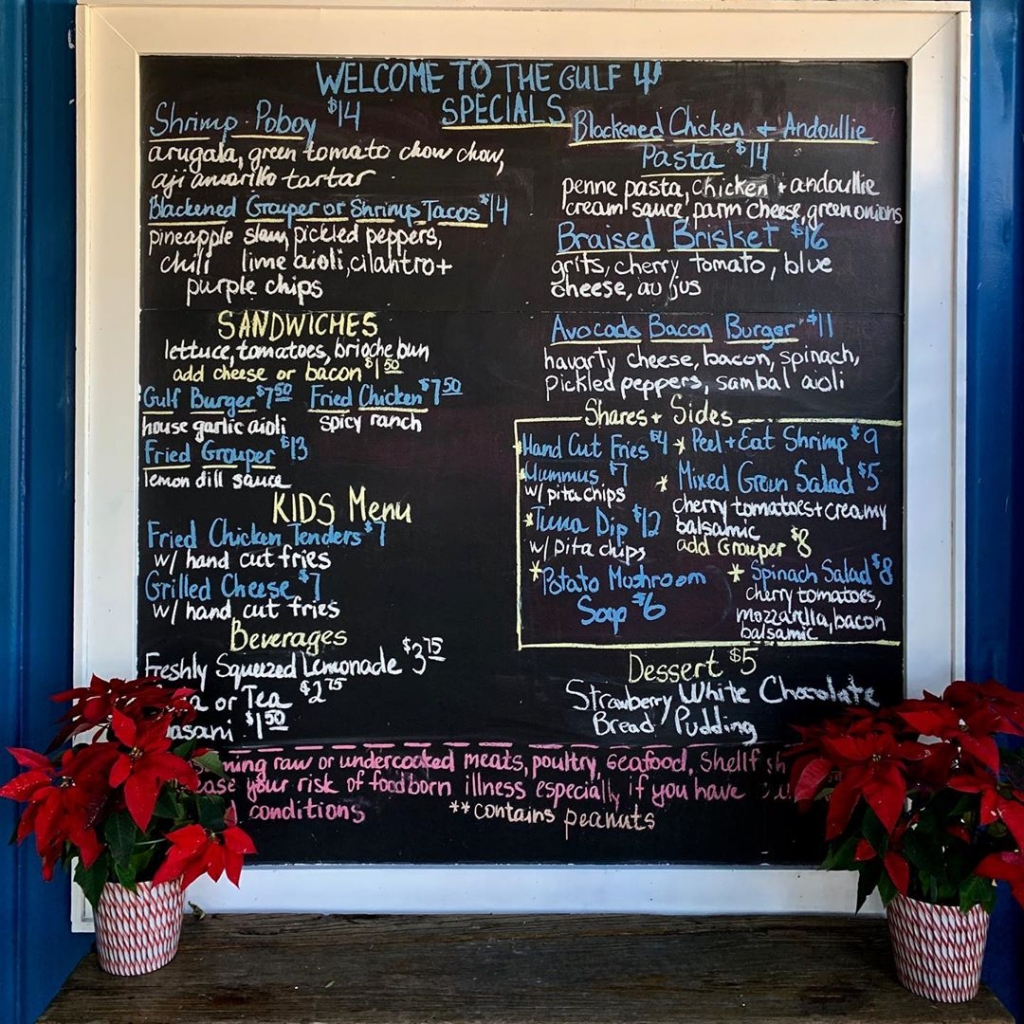 WELCOME TO THE GULF
SPECIALS
Shrimp Poboy $14
arugala, green tomato chow chow,
aji amarillo tartar
Blackened Grouper or Shrimp Tacos $14
pineapple slaw, pickled peppers,
chili lime aioli, cilantro +
purple chips
Blackened Chicken + Andoullie
Pasta $14
penne pasta, chicken + andoullie
cream sauce, parm cheese, green onions
Braised Brisket $16
grits, cherry tomato, blue
cheese, au jus
Avocado Bacon Burger $11
havarty cheese, bacon, spinach,
pickled peppers, sambal aioli
SANDWICHES
lettuce, tomatoes, brioche bun
add cheese or bacon $1.50
Gulf Burger $7.50 Fried Chicken $7.50
house garlic aioli spicy ranch
Fried Grouper $13
lemon dill sauce
KIDS Menu
Fried Chicken Tenders $7
w/ hand cut fries
Grilled Cheese $7
w/ hand cut fries
Beverages
Freshly Squeezed Lemonade $3.75
or Tea $2.75
$1.50
Shares + Sides
*Hand Cut Fries $4
*Hummus $7
w/ pita chips
*Tuna Dip $12
w/ pita chips
*Potato Mushroom
Soup $6
*Peel + Eat Shrimp $9
*Mixed Green Salad $5
cherry tomatoes + creamy
balsamic
add Grouper $8
*Spinach Salad $8
cherry tomatoes,
mozzarella, bacon
balsamic
Dessert $5
Strawberry White Chocolate
Bread Pudding
raw or undercooked meats, poultry, seafood,
your risk of foodborn illness especially if you have
conditions **contains peanuts